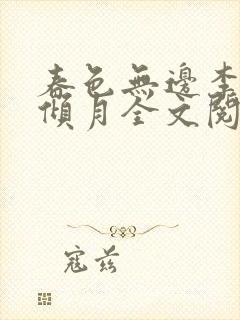 春色無邊李
傾月全文閱
寇兹